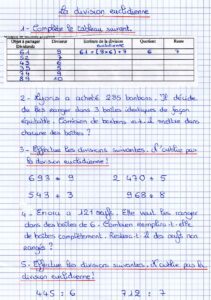 La division euclidienne
1 - Complète le tableau suivant.
Diviseur Quotient Reste
61 9 61 = (9×6)+7 6 7
52 7
74 8
89 10
2 - a acheté 285 bonbons. Il décide
de les ranger dans 3 boîtes identiques de façon
équitable. Combien de bonbons va-t-il mettre dans
chacune des boîtes ?
3 - Effectue les divisions suivantes, n'oublie pas
la division euclidienne !
693 ÷ 9 2 470 ÷ 5
543 ÷ 3 968 ÷ 8
4 - a 121 œufs. Elle veut les ranger
dans des boîtes de 6. Combien remplira-t-elle
de boîtes complètement. Restera-t-il des œufs non
rangés ?
5 - Effectue les divisions suivantes, n'oublie pas la
division euclidienne !
445 : 6 712 : 7